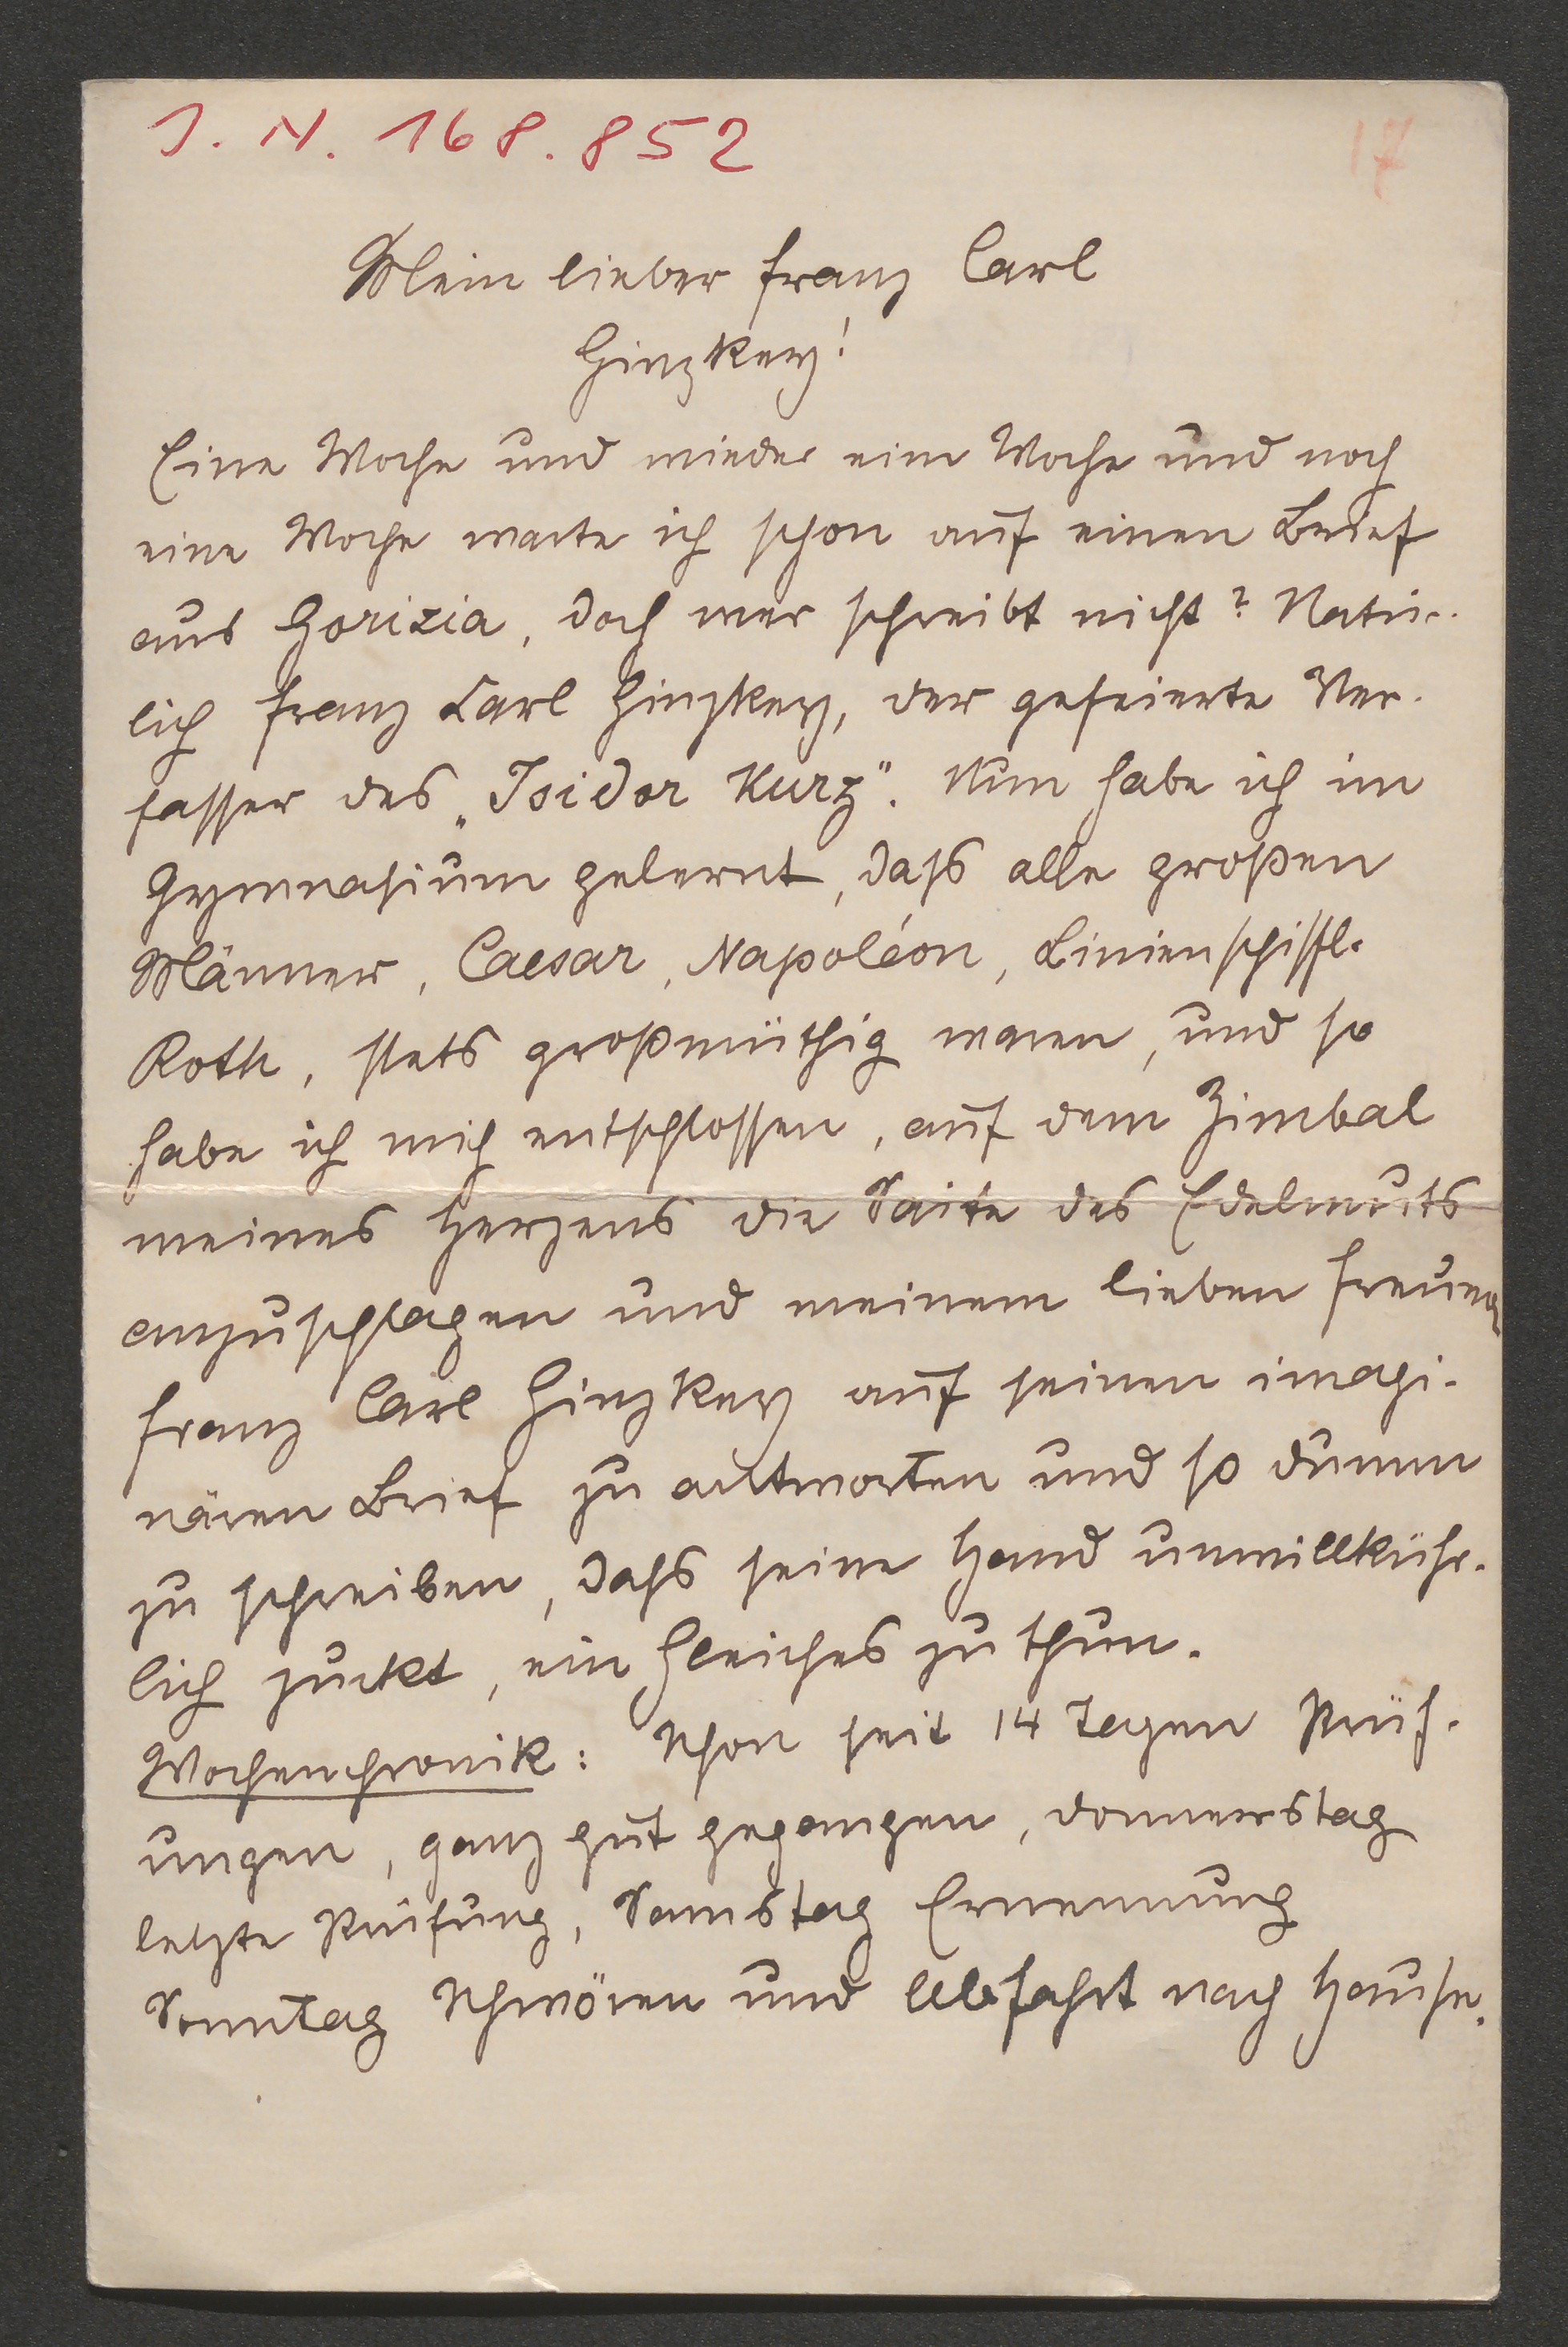 J. N. 168.852
17
Mein lieber Franz Carl
Ginzkey!
Eine Woche und wieder eine Woche und noch
eine Woche warte ich schon auf einen Brief
aus Gorizia, doch wer schreibt nicht? Natür-
lich Franz Carl Ginzkey, der gefeierte Ver-
fasser des „Isidor Kurz". Nun habe ich im
Gymnasium gelernt, dass alle großen
Männer, Caesar, Napoléon, Linienschiffl.
Roth, stets großmüthig waren, und so
habe ich mich entschlossen, auf dem Zimbal
meines Herzens die Saite des Edelmuts
anzuschlagen und meinem lieben Freund
Franz Carl Ginzkey auf seinen imagi-
nären Brief zu antworten und so dumm
zu schreiben, dass seine Hand unwillkühr-
lich zuckt, ein Gleiches zu thun.
Wochenchronik: Schon seit 14 Tagen Prüf-
ungen, ganz gut gegangen, Donnerstag
letzte Prüfung, Samstag Ernennung
Sonntag Schwören und Abfahrt nach Hause.